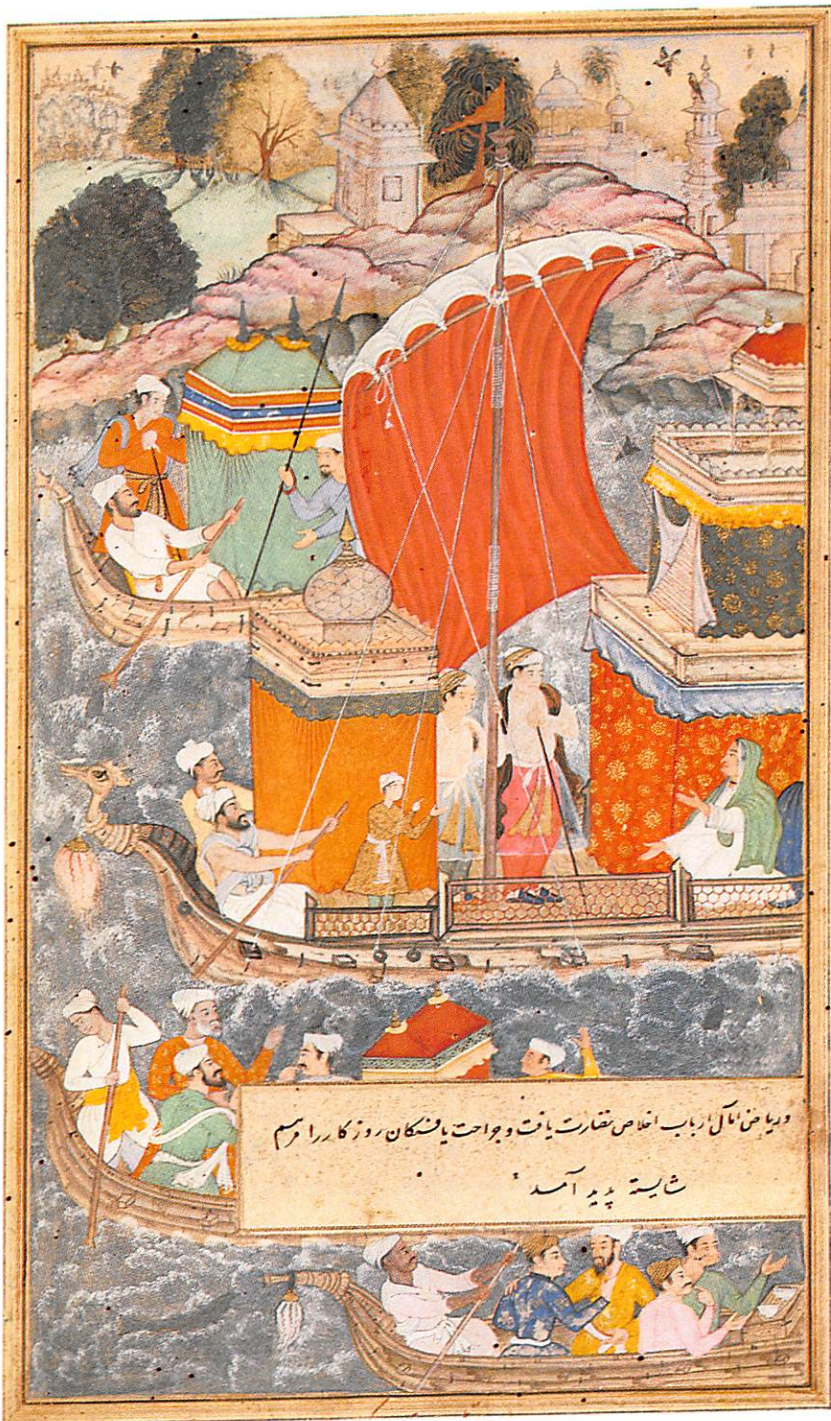 وریاض آمال ارباب اخلاص نضارت یافت و جراحت یافتگان روزگار را مرهم
شایسته پدید آمد